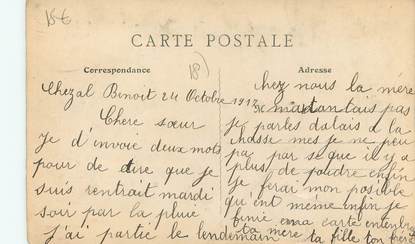 15€
CARTE POSTALE
Correspondance
Adresse
18)
Chezal Benoit 24 Octobre 1912
Chere sœur
Je d'envoie deux mots
pour de dire que je
suis rentrait mardi
soir par la pluie
j'ai partie le lendemain
chez nous la mère
tais pas
je parles dalais a la
chasse mes je ne peu
pa par se que il y a
plus de poudre enfin
je ferai mon posible
qu ent meme enfin je
finie ma carte en
ta mère ta fille ton